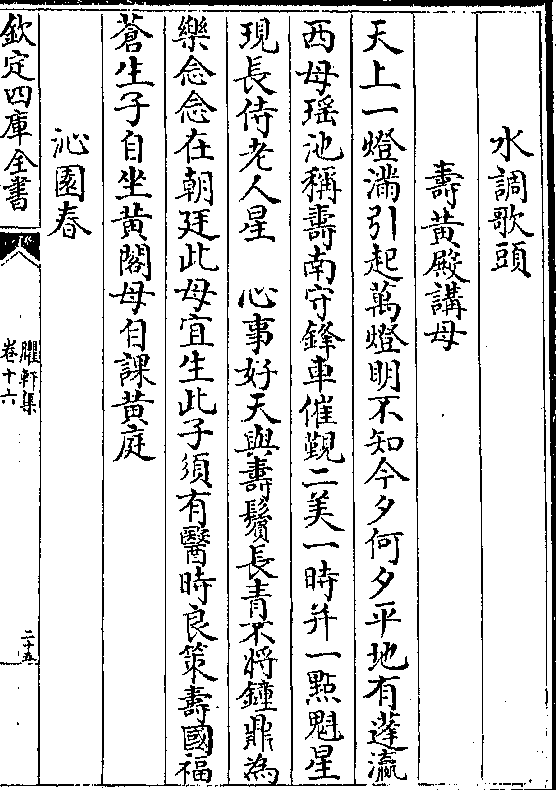 水調歌頭
壽黃殿講母
天上一燈滿引起萬燈明不知今夕何夕平地有蓬瀛
西母瑶池稱壽南守鋒車催覲二美一時并一點魁星
現長侍老人星　心事好天與壽鬢長青不將鐘鼎為
樂念念在朝廷此母宜生此子須有醫時良策壽國福
蒼生子自坐黃閣母自課黃庭
沁園春
欽定四庫全書
臞軒集
卷十六
二十五